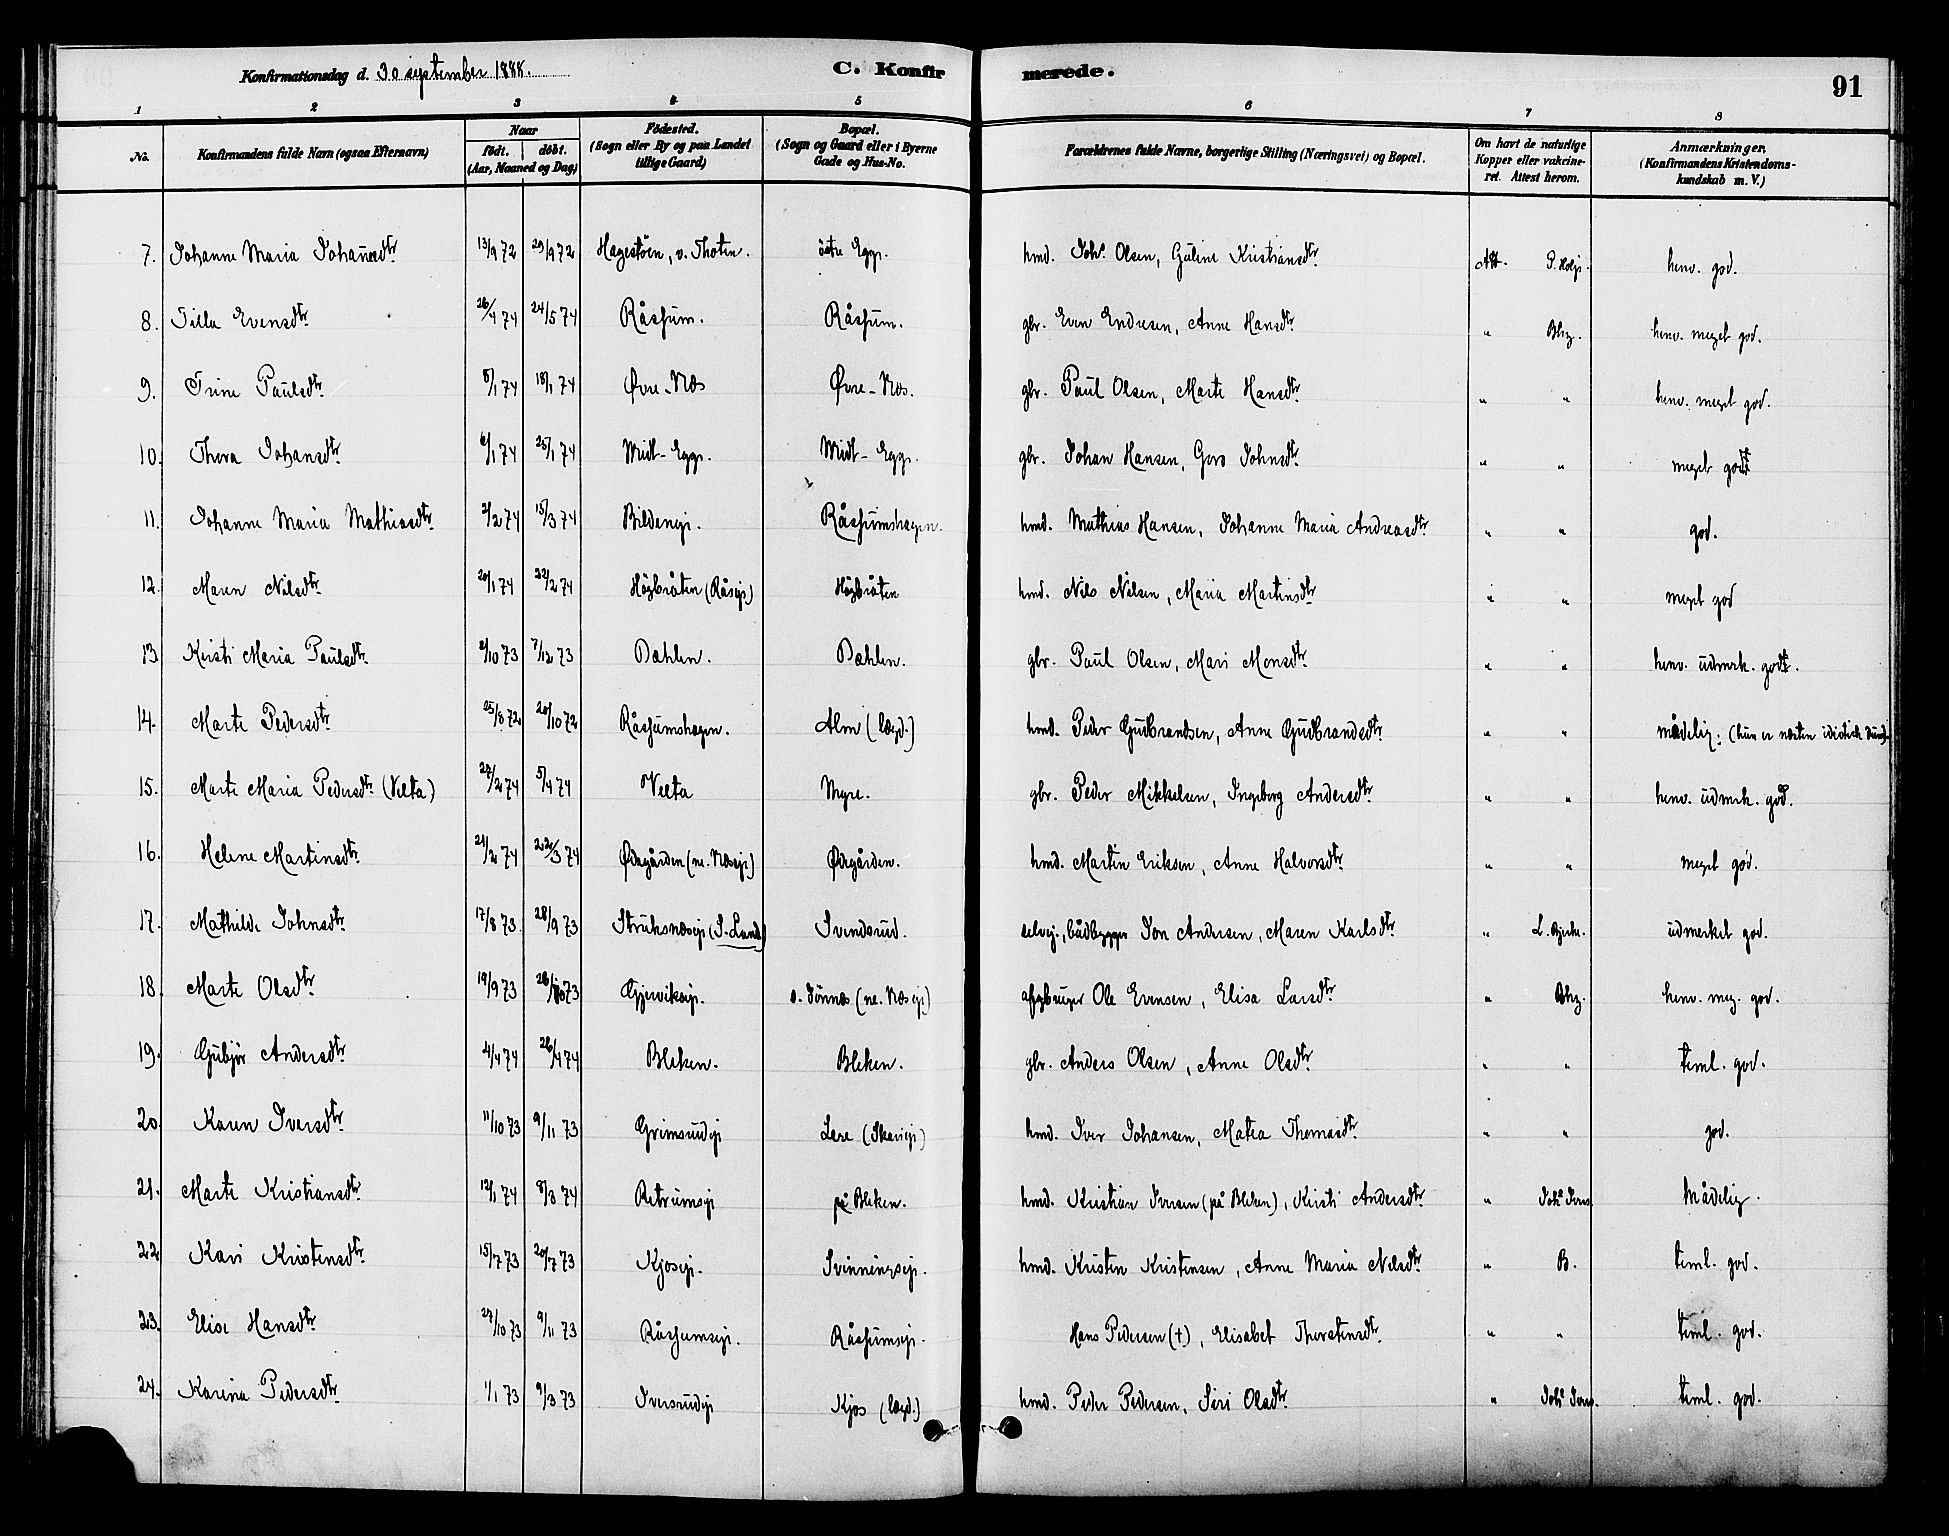 Konfirmationsdag d. 30 september 1888. C. Konfirmerede. 91
1 2 3 4 5 6 7 8
No. Konfirmandens fulde Navn (ogsaa Efternavn) Naar födt. döbt. (Aar, Maaned og Dag) Födested. (Sogn eller By og paa Landet tillige Gaard) Bopæl. (Sogn og Gaard eller i Byerne Gade og Hus-No. Forældrenes fulde Navne, borgerlige Stilling (Næringsvei) og Bopæl. Om havt de naturlige Kopper eller vakcineret. Attest herom. Anmærkninger, (Konfirmandens Kristendomskundskab m. V.)
7. Johanne Maria Johannesdtr 13/9 72 29/9 72 Hagestöen, v. Thoten. östre Egge. hmd. Johs Olsen, Guline Kristiansdtr Att. P. Holjs. henv. god.
8. Silla Evensdtr 26/4 74 24/5 74 Råssum. Råssum. gbr. Even Endresen, Anne Hansdtr " Bhrg. henv. meget god.
9. Trine Paulsdtr 5/1 74 18/1 74 Øvre-Næs Øvre-Næs. gbr. Paul Olsen, Marte Hansdtr " " henv. meget god.
10. Thora Johansdtr 6/1 74 25/1 74 Midt-Egge. Midt-Egge. gbr. Johan Hansen, Goro Johnsdtr " " meget godt
11. Johanne Maria Mathiasdtr 2/2 74 15/3 74 Bildenejr. Råssumshagen. hmd. Mathias Hansen, Johanne Maria Andreasdtr " " god.
12. Maren Nilsdtr 20/1 74 22/2 74 Högbråten (Råsejr) Högbråten hmd. Nils Nilsen, Maria Martinsdtr " " meget god
13 Kirsti Maria Paulsdtr 2/10 73 7/12 73 Dæhlen. Dæhlen. gbr. Paul Olsen, Mari Monsdtr " " henv. udmrk. godt.
14. Marte Pedersdtr 25/8 72 20/10 72 Råssumshagen. Alm (lægd.) hmd. Peder Gudbrandsen, Anne Gudbrandsdtr " " mådelig: (hun er næsten idiotisk dum).
15. Marte Maria Pedersdtr (Velta) 22/2 74 5/4 74 Velta Myre. gbr. Peder Mikkelsen, Ingeborg Andersdtr " " henv. udmrk. god.
16. Helene Martinsdtr 21/2 74 22/3 74 Ødegården (ne. Næsejr) Ødegården. hmd. Martin Eriksen, Anne Halvorsdtr " " meget god.
17. Mathilde Johnsdtr 17/8 73 28/9 73 Struksnæsejr (S. Land) Svendsrud. selvej., bådbygger Jon Andersen, Maren Karlsdtr " L. Bjerke. udmerket god.
18. Marte Olsdtr 19/9 73 26/10 73 Gjerviksejr. s. Sönnæs (ne. Næsejr) afgbruger Ole Evensen, Elisa Larsdtr " Bhrg. henv. meg. god.
19. Gubjör Andersdtr 4/4 74 26/4 74 Bleken. Bleken. gbr. Anders Olsen, Anne Olsdtr " " teml. god.
20 Karen Iversdtr 11/10 73 9/11 73 Grimsrudejr Lere (Skariejr) hmd. Iver Johansen, Matea Thomasdtr " " god.
21. Marte Kristiansdtr 12/1 74 8/3 74 Retrumsejr på Bleken. hmd. Kristian Iversen (på Bleken), Kirsti Andersdtr " Johs Ivers. Mådelig.
22 Kari Kristensdtr 15/7 73 20/7 73 Kjosejr. Svinningsejr. hmd. Kristen Kristensen, Anne Maria Nilsdtr " B. teml. god.
23. Elise Hansdtr 27/10 73 9/11 73 Råssumsejr. Råssumsejr. Hans Pedersen (†), Elisabet Thorstensdtr " " teml. god.
24. Karina Pedersdtr 1/1 73 9/3 73 Iversrudejr Kjos (lægd.) hmd. Peder Pedersen, Siri Olsdtr " Johs Ivers. teml. god.